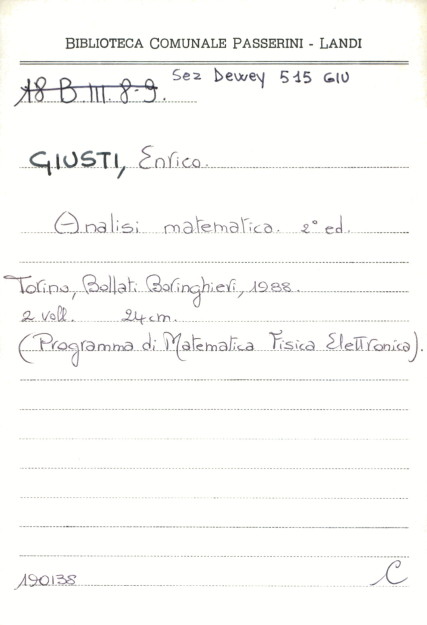 BIBLIOTECA COMUNALE PASSERINI - LANDI
18 B III. 8-9. Sez Dewey 515 GIU
GIUSTI, Enrico.
Analisi matematica. 2° ed.
Torino, Bollati Boringhieri, 1988.
2 voll. 24 cm.
(Programma di Matematica Fisica Elettronica).
190138 C